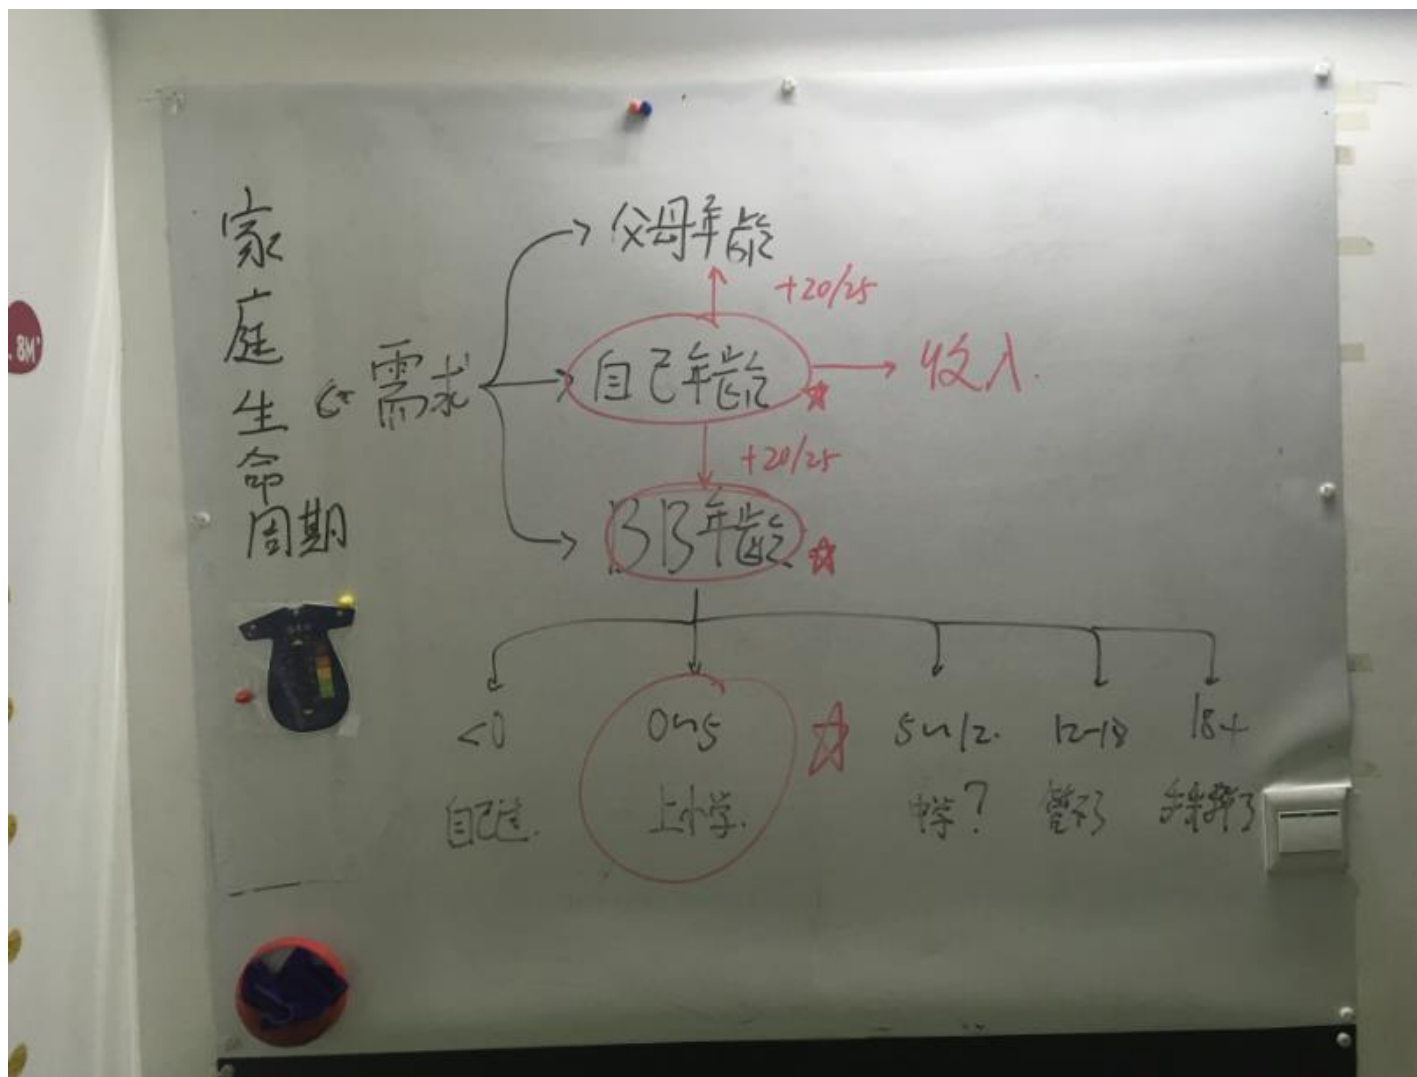 家庭生命周期
需求
父母年龄
+20/25
自己年龄
收入
+20/25
BB年龄
<0
0~5
5~12
12-18
18+
自己过
上小学
中学?
管不了
8M